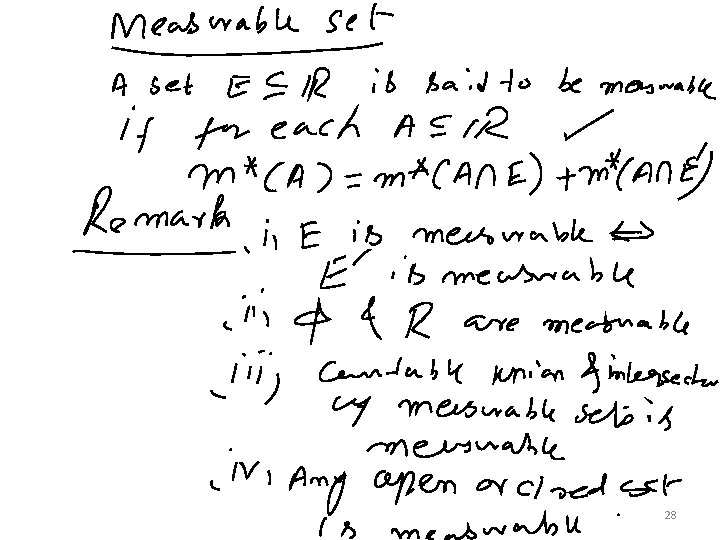 Measurable set
A set E ⊆ IR is said to be measurable
if for each A ⊆ IR ✓
m*(A) = m*(A∩E) + m*(A∩E′)
Remark i, E is measurable ⇔
E′ is measurable
ii, ϕ & R are measurable
iii, Countable union & intersection
of measurable sets is
measurable
iv, Any open or closed set
is measurable.
28